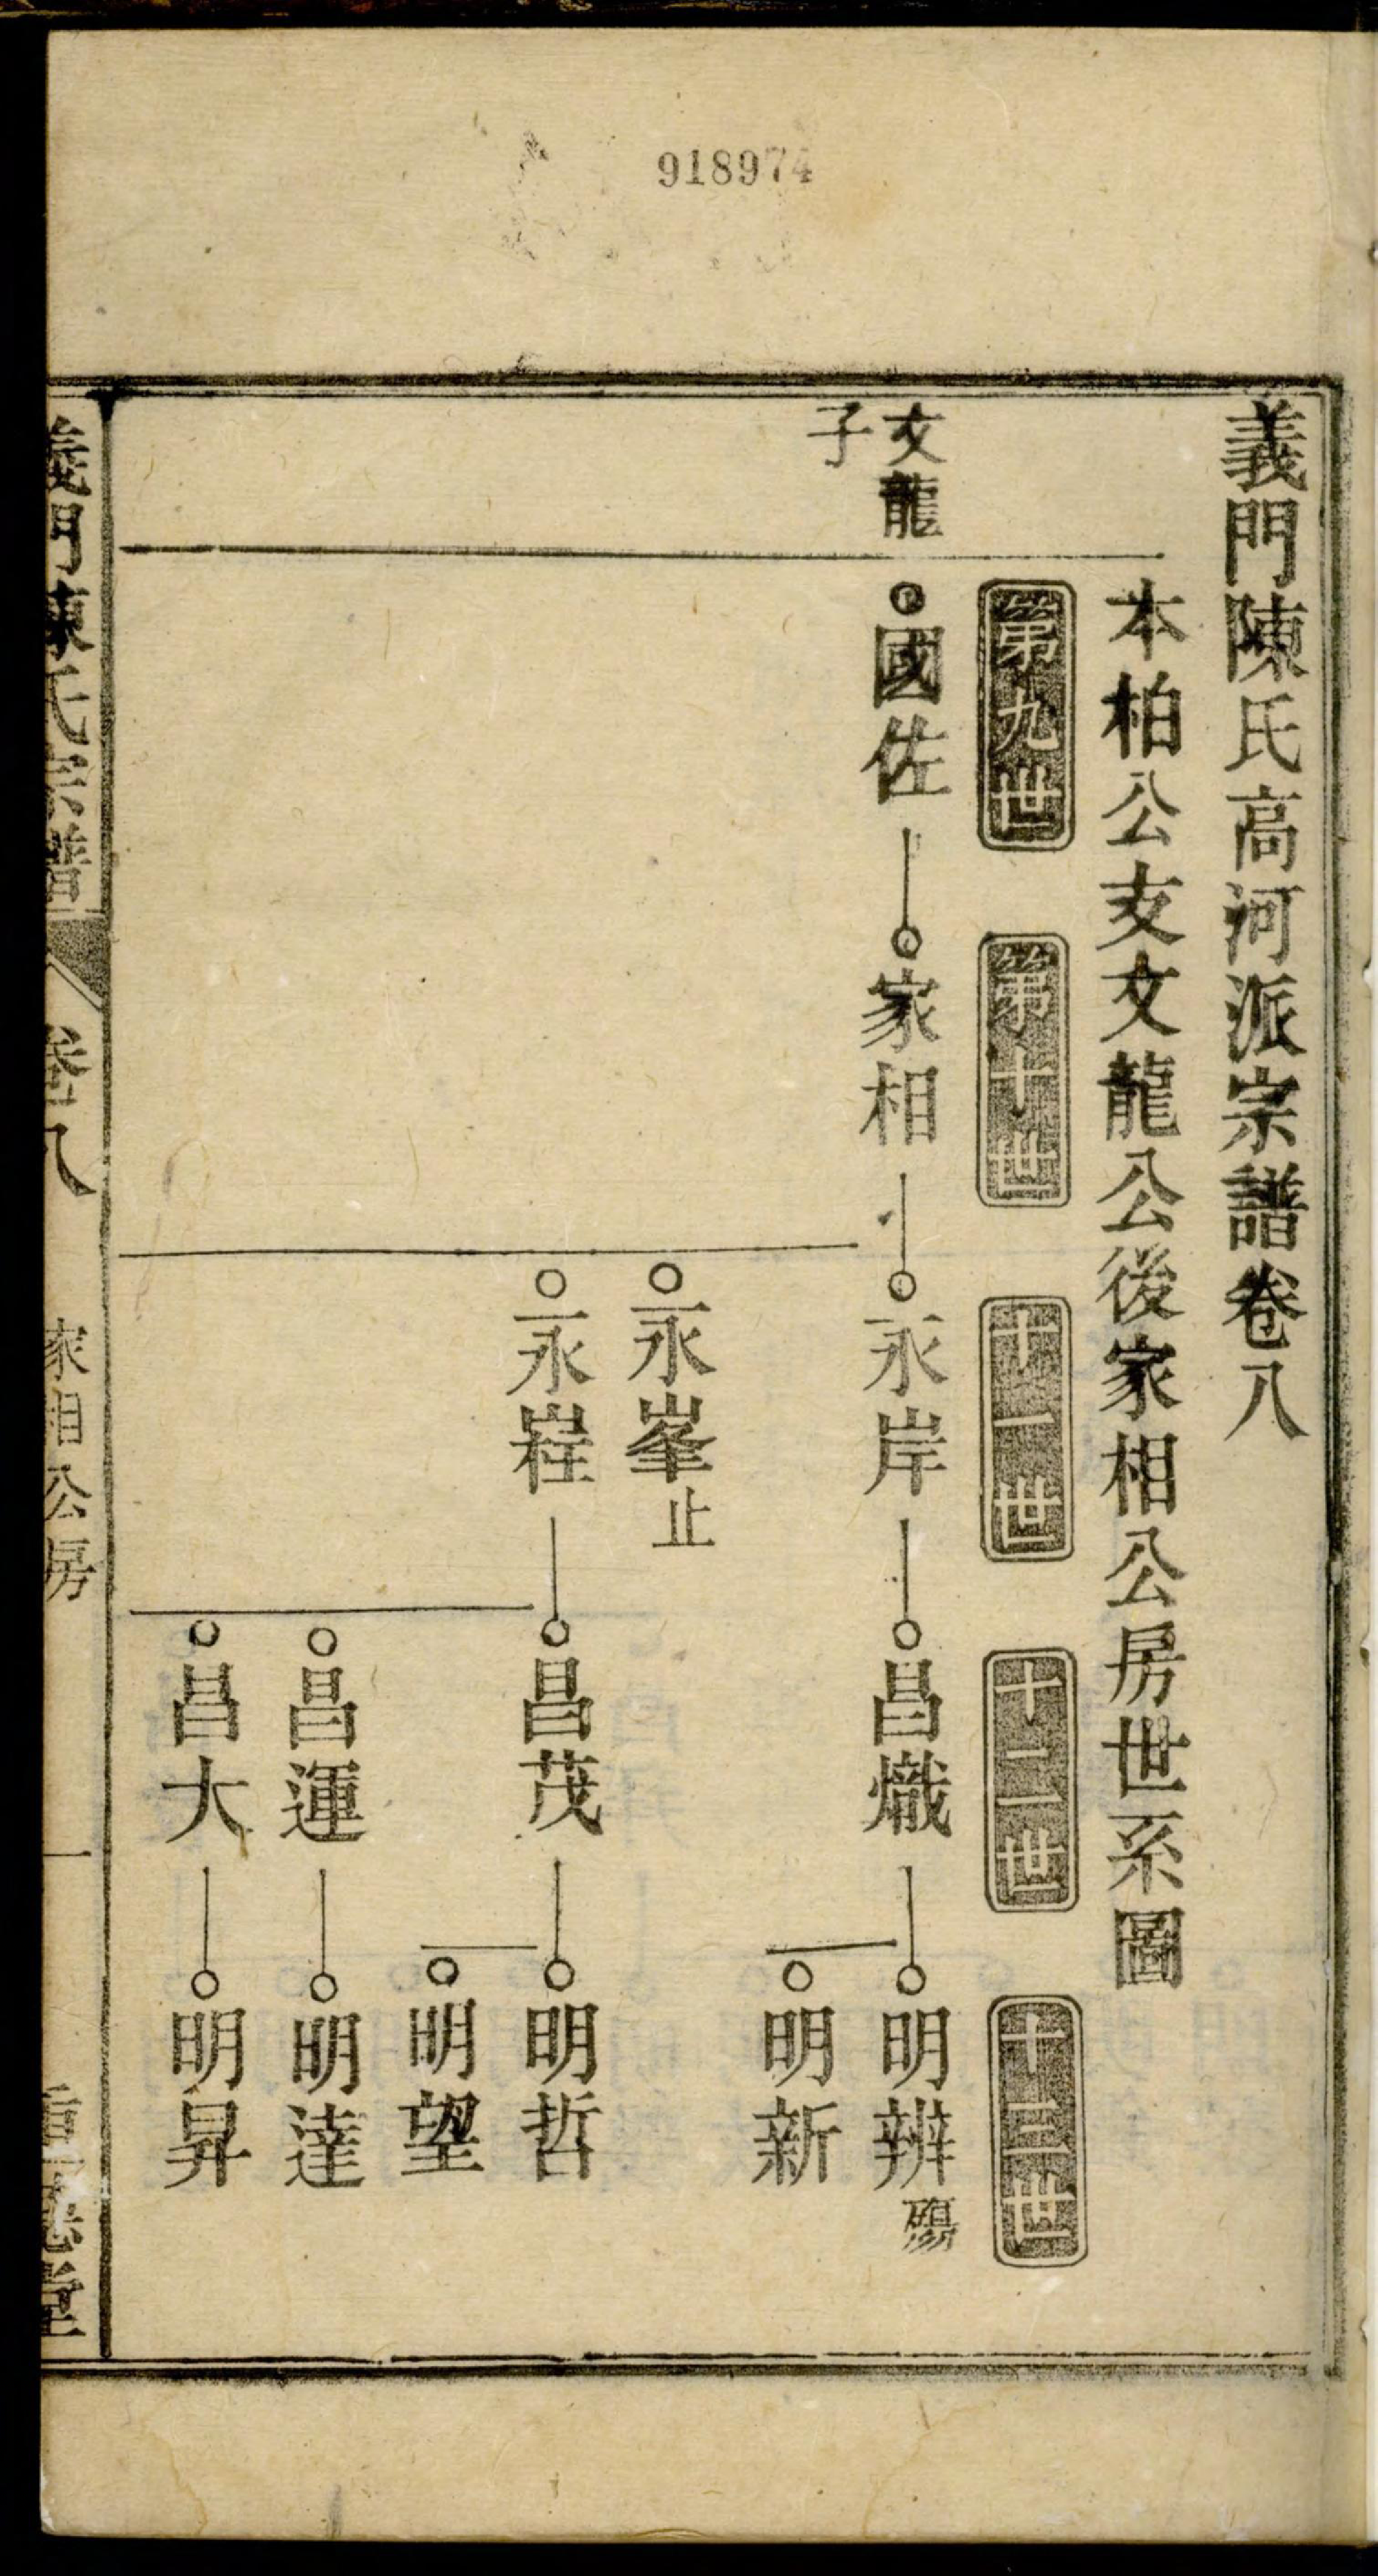 918974
義門陳氏高河派宗譜卷八
本柏公支文龍公後家相公房世系圖
第九世
第十世
十一世
十二世
十三世
文龍
子
國佐
家相
永岸
昌熾
明辨殤
明新
永峯止
永嵀
昌茂
明哲
明望
昌運
明達
昌大
明昇
義門陳氏宗譜
卷八
家相公房
一
堂